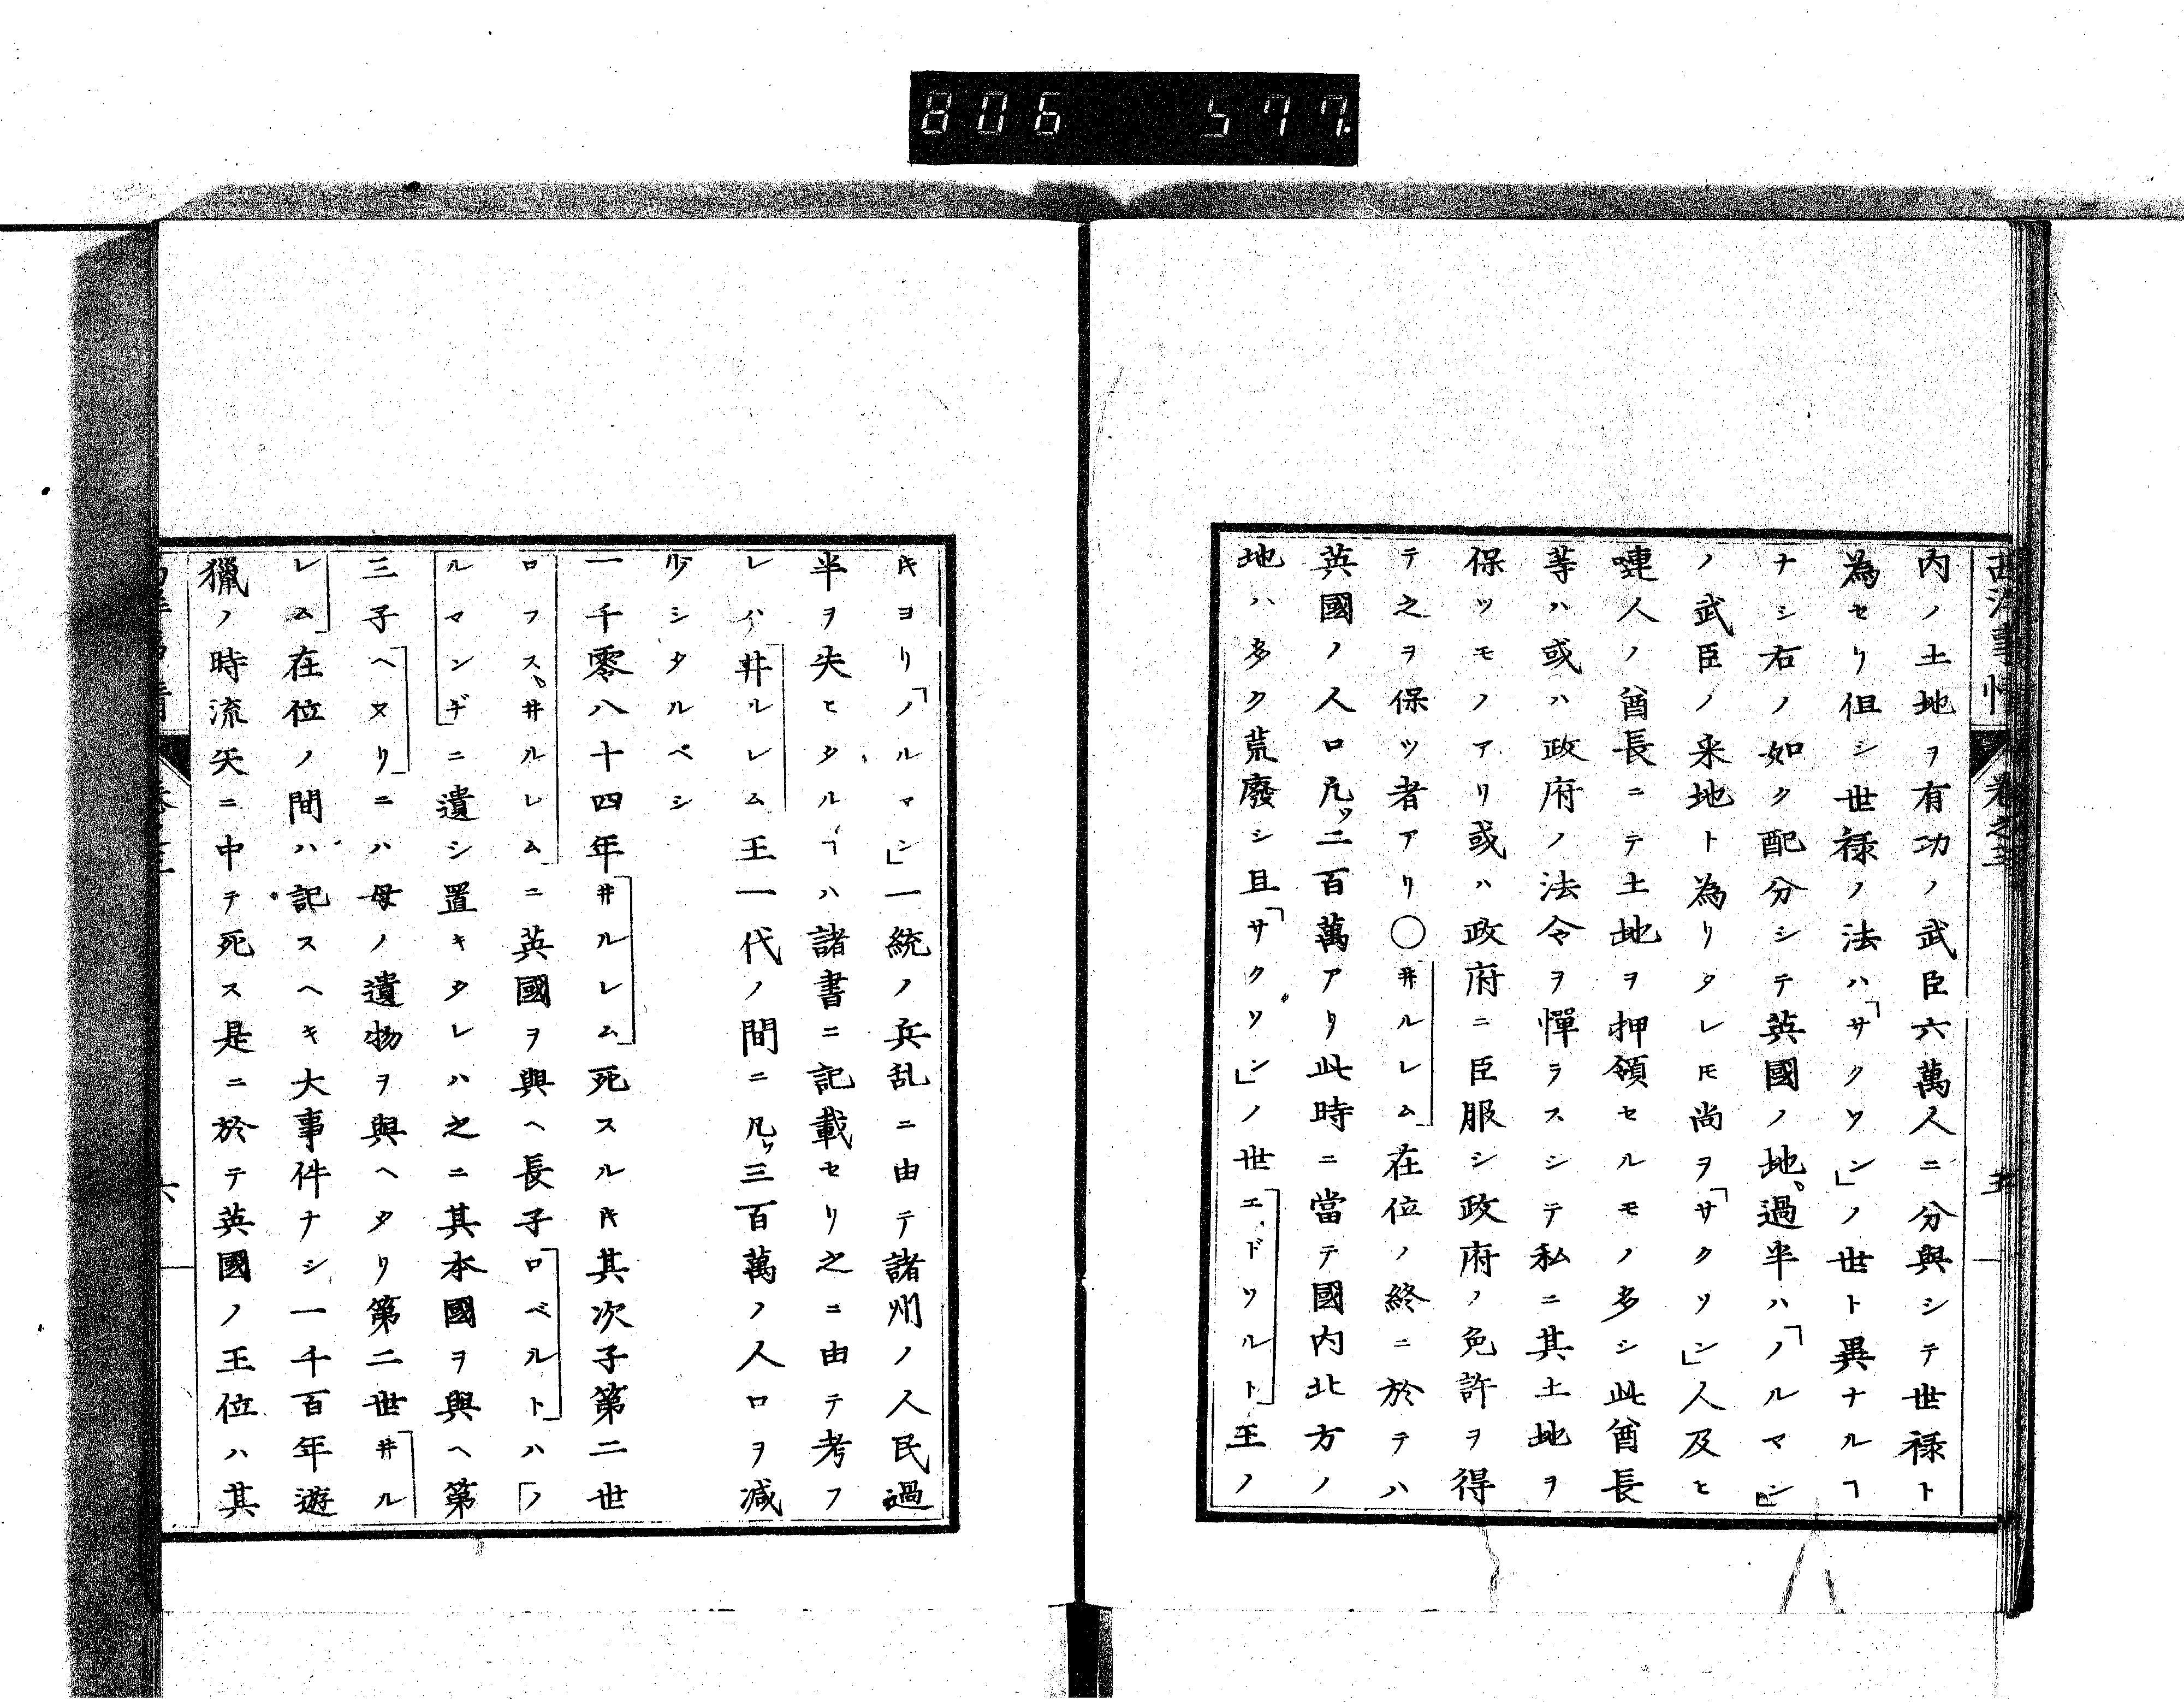 806 577.
西洋事情 巻之三 五
内ノ土地ヲ有功ノ武臣六萬人ニ分與シテ世禄ト
為セリ但シ世禄ノ法ハ「サクソン」ノ世ト異ナルヿ
ナシ右ノ如ク配分シテ英國ノ地過半ハ「ノルマン」
ノ武臣ノ采地ト為リタレ𪜈尚ヲ「サクソン」人及ヒ
嗹人ノ酋長ニテ土地ヲ押領セルモノ多シ此酋長
等ハ或ハ政府ノ法令ヲ憚ラスシテ私ニ其土地ヲ
保ツモノアリ或ハ政府ニ臣服シ政府ノ免許ヲ得
テ之ヲ保ツ者アリ○井ルレム在位ノ終ニ於テハ
英國ノ人口凡ツ二百萬アリ此時ニ當テ國内北方ノ
地ハ多ク荒廢シ且「サクソン」ノ世エドワルト王ノ
𪜈ヨリ「ノルマン」一統ノ兵乱ニ由テ諸州ノ人民過
半ヲ失ヒタルヿハ諸書ニ記載セリ之ニ由テ考フ
レハ井ルレム王一代ノ間ニ凡ツ三百萬ノ人口ヲ減
少シタルベシ
一千零八十四年井ルレム死スルキ其次子第二世
ロフス、井ルレムニ英國ヲ與ヘ長子ロベルトハ「ノ
ルマンヂニ遺シ置キタレハ之ニ其本國ヲ與ヘ第
三子ヘヌリニハ母ノ遺物ヲ與ヘタリ第二世井ル
レム在位ノ間ハ記スヘキ大事件ナシ一千百年遊
獵ノ時流矢ニ中テ死ス是ニ於テ英國ノ王位ハ其